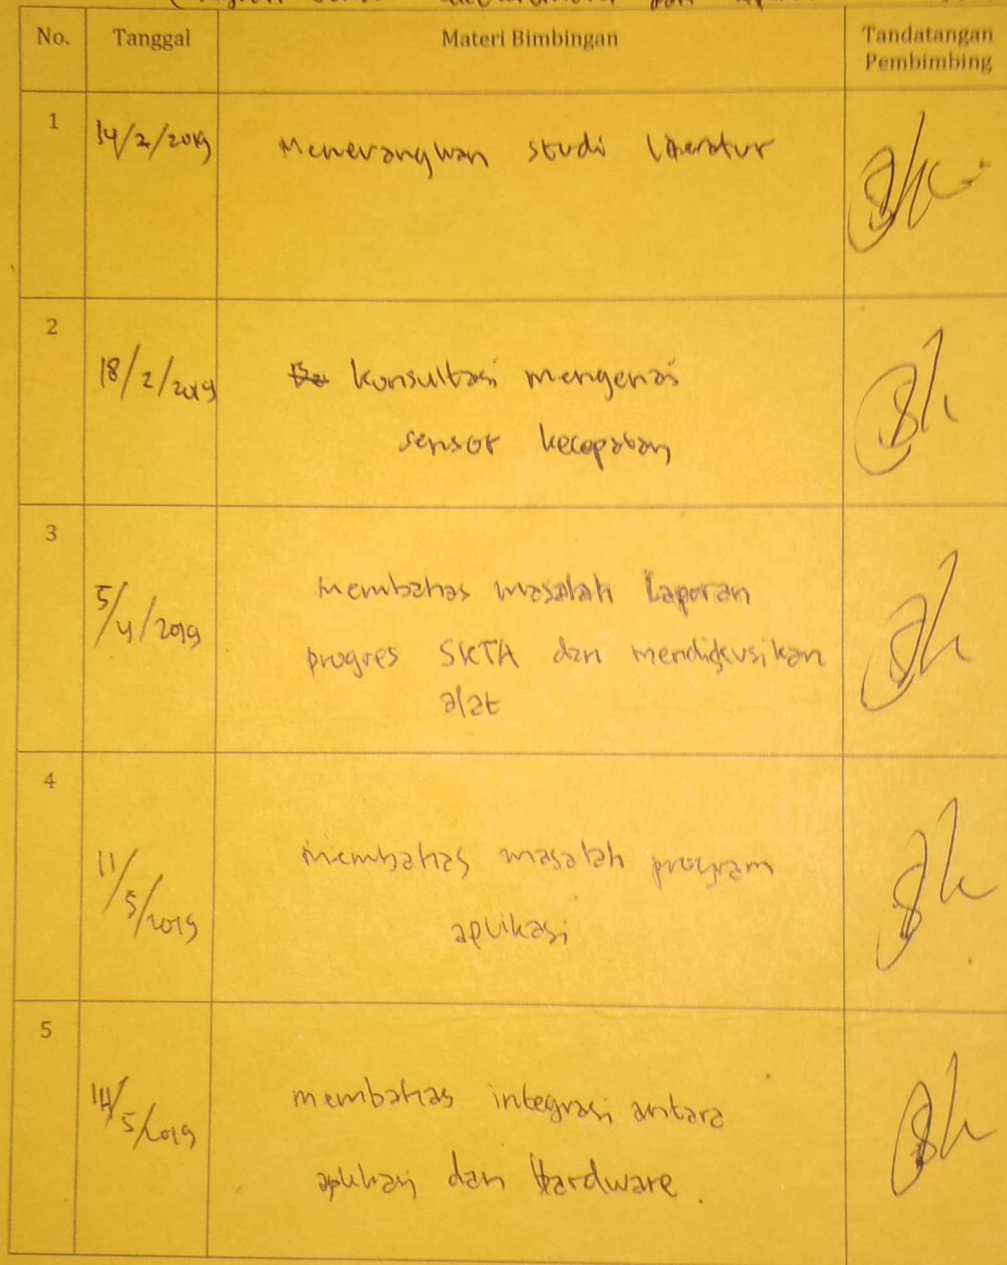 No. Tanggal Materi Bimbingan Tandatangan
Pembimbing
1 14/2/2019 Menerangkan studi literatur
2 18/2/2019 konsultasi mengenai
sensor kecepatan
3 5/4/2019 membahas masalah Laporan
progres SKTA dan mendiskusikan
alat
4 11/5/2019 membahas masalah program
aplikasi
5 14/5/2019 membahas integrasi antara
aplikasi dan Hardware.